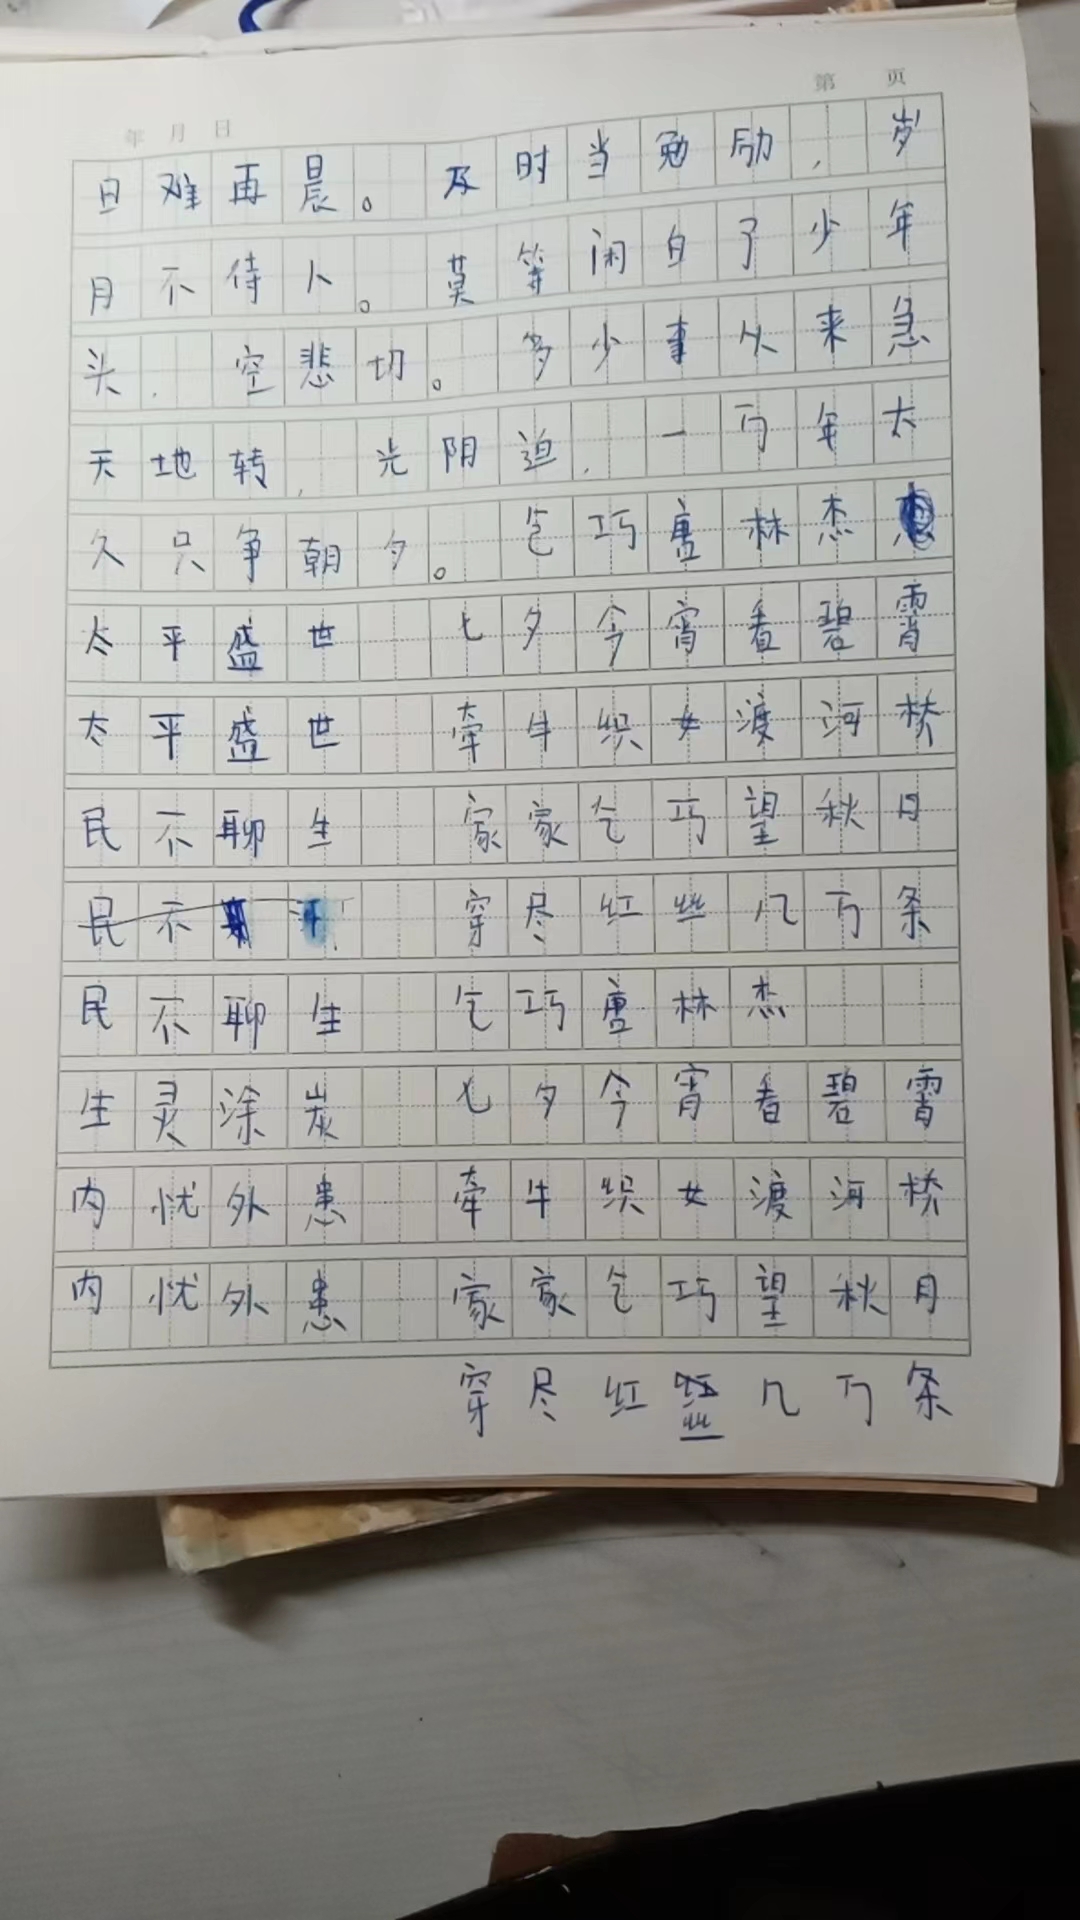 第 页
年 月 日
日难再晨。及时当勉励，岁
月不待人。莫等闲白了少年
头，空悲切。多少事从来急
天地转，光阴迫，一万年太
久只争朝夕。乞巧唐林杰
太平盛世 七夕今宵看碧霄
太平盛世 牵牛织女渡河桥
民不聊生 家家乞巧望秋月
民不 穿尽红丝几万条
民不聊生 乞巧唐林杰
生灵涂炭 七夕今宵看碧霄
内忧外患 牵牛织女渡河桥
内忧外患 家家乞巧望秋月
穿尽红丝几万条